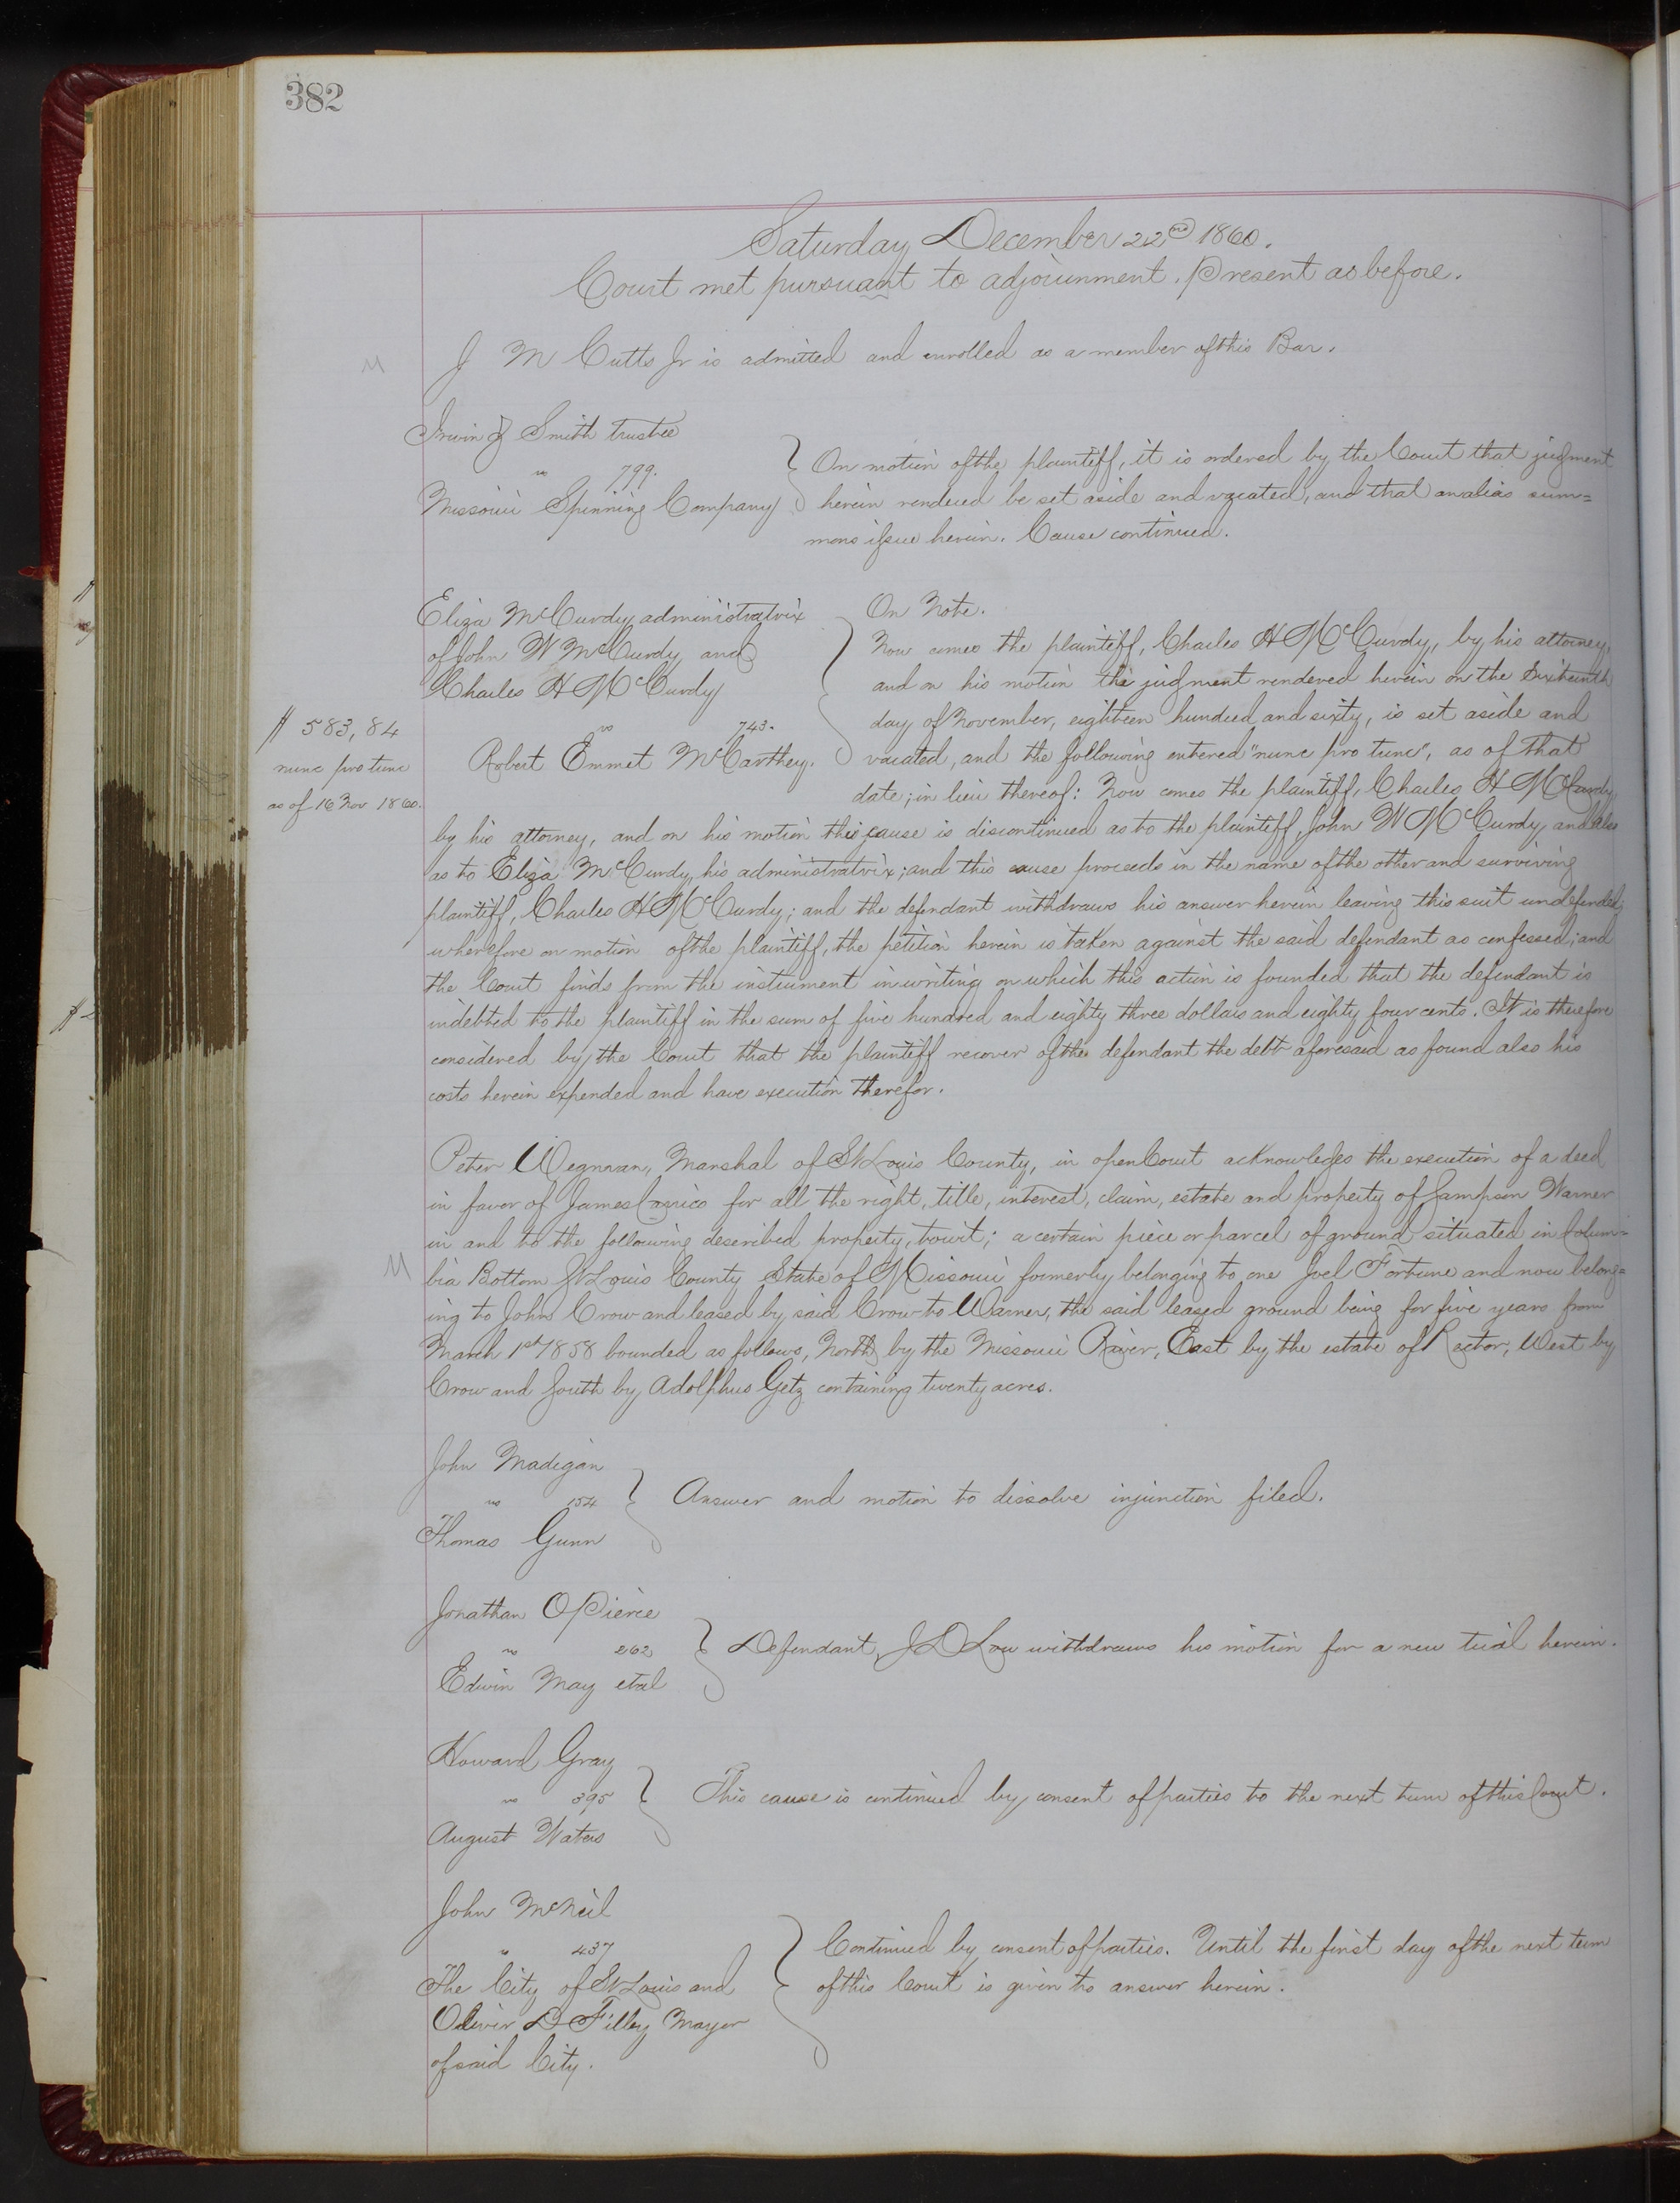 382
Saturday December 22nd 1860.
Court met pursuant to adjournment. Present as before.
M
J M Cutts Jr is admitted and enrolled as a member of this Bar.
Irwin Z Smith trustee
vs 799.
Missouri Spinning Company
On motion of the plaintiff, it is ordered by the Court that judgment
herein rendered be set aside and vacated, and that an alias sum=
mons issue herein. Cause continued.
Eliza McCurdy administratrix
of John W McCurdy and
Charles H McCurdy
vs 743.
Robert Emmet McCarthey.
$ 583,84
nunc pro tunc
as of 16 Nov 1860.
On Note.
Now comes the plaintiff, Charles H McCurdy, by his attorney,
and on his motion the judgment rendered herein on the Sixteenth
day of November, eighteen hundred and sixty, is set aside and
vacated, and the following entered "nunc pro tunc", as of that
date; in lieu thereof: Now comes the plaintiff, Charles H McCurdy
by his attorney, and on his motion this cause is discontinued as to the plaintiff, John W McCurdy, and also
as to Eliza McCurdy, his administratrix; and this cause proceeds in the name of the other and surviving
plaintiff, Charles H McCurdy; and the defendant withdraws his answer herein leaving this suit undefended;
wherefore on motion of the plaintiff, the petition herein is taken against the said defendant as confessed; and
the Court finds from the instrument in writing on which this action is founded that the defendant is
indebted to the plaintiff in the sum of five hundred and eighty three dollars and eighty four cents. It is therefore
considered by the Court that the plaintiff recover of the defendant the debt aforesaid as found also his
costs herein expended and have execution therefor.
Peter Wegman, Marshal of St Louis County, in open Court acknowledges the execution of a deed
in favor of James Carrico for all the right, title, interest, claim, estate and property of Sampson Warner
in and to the following described property, towit; a certain piece or parcel of ground situated in Colum=
M
bia Bottom St Louis County State of Missouri formerly belonging to one Joel Fortune and now belong=
ing to John Crow and leased by said Crow to Warner, the said leased ground being for five years from
March 1st 1858 bounded as follows, North by the Missouri River, East by the estate of Rector, West by
Crow and South by Adolphus Getz containing twenty acres.
John Madigan
vs 154
Thomas Gunn
Answer and motion to dissolve injunction filed.
Jonathan O Pierce
vs 262
Edwin May etal
Defendant, J D Low withdraws his motion for a new trial herein.
Howard Gray
vs 395
August Waters
This cause is continued by consent of parties to the next term of this Court.
John McNeil
vs 437
The City of St Louis and
Oliver D Filley Mayor
of said City.
Continued by consent of parties. Until the first day of the next term
of this Court is given to answer herein.